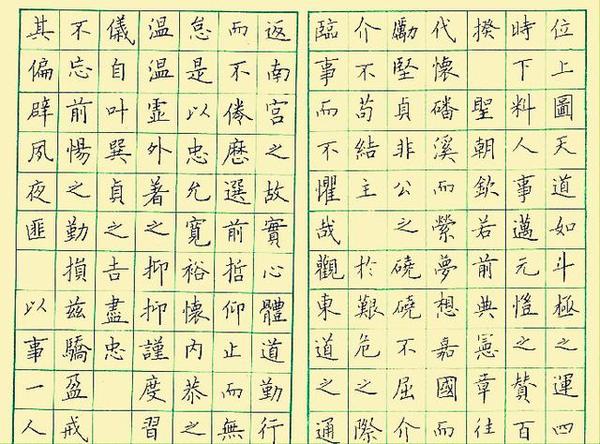 位上圖天道如斗極之運四
時下料人事邁元愷之贊百
揆 聖朝欽若前典憲章往
代懷磻溪而縈夢想嘉國而
勵堅貞非公之磽磽不屈介
介不苟結主 於艱危之際
臨事而不懼哉觀東道之通
返南宮之故實心體道勤行
而不倦歷選前哲仰止而無
怠是以忠允寬裕懷內恭之
溫溫虛外著之抑抑謹度習
儀自叶巽貞之吉盡忠
不忘前惕之勤損茲驕盈戒
其偏辟夙夜匪 以事一人